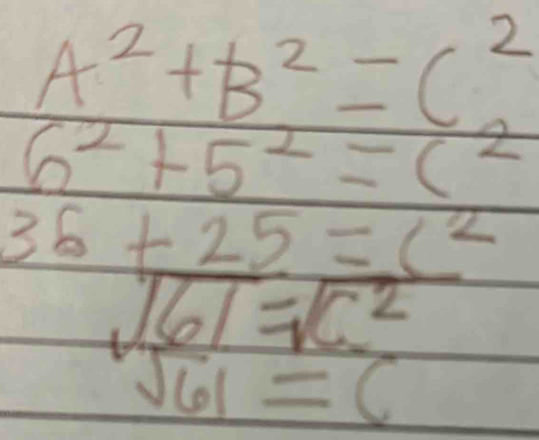 A² + B² = C²
6² + 5² = C²
36 + 25 = C²
√61 = √C²
√61 = C